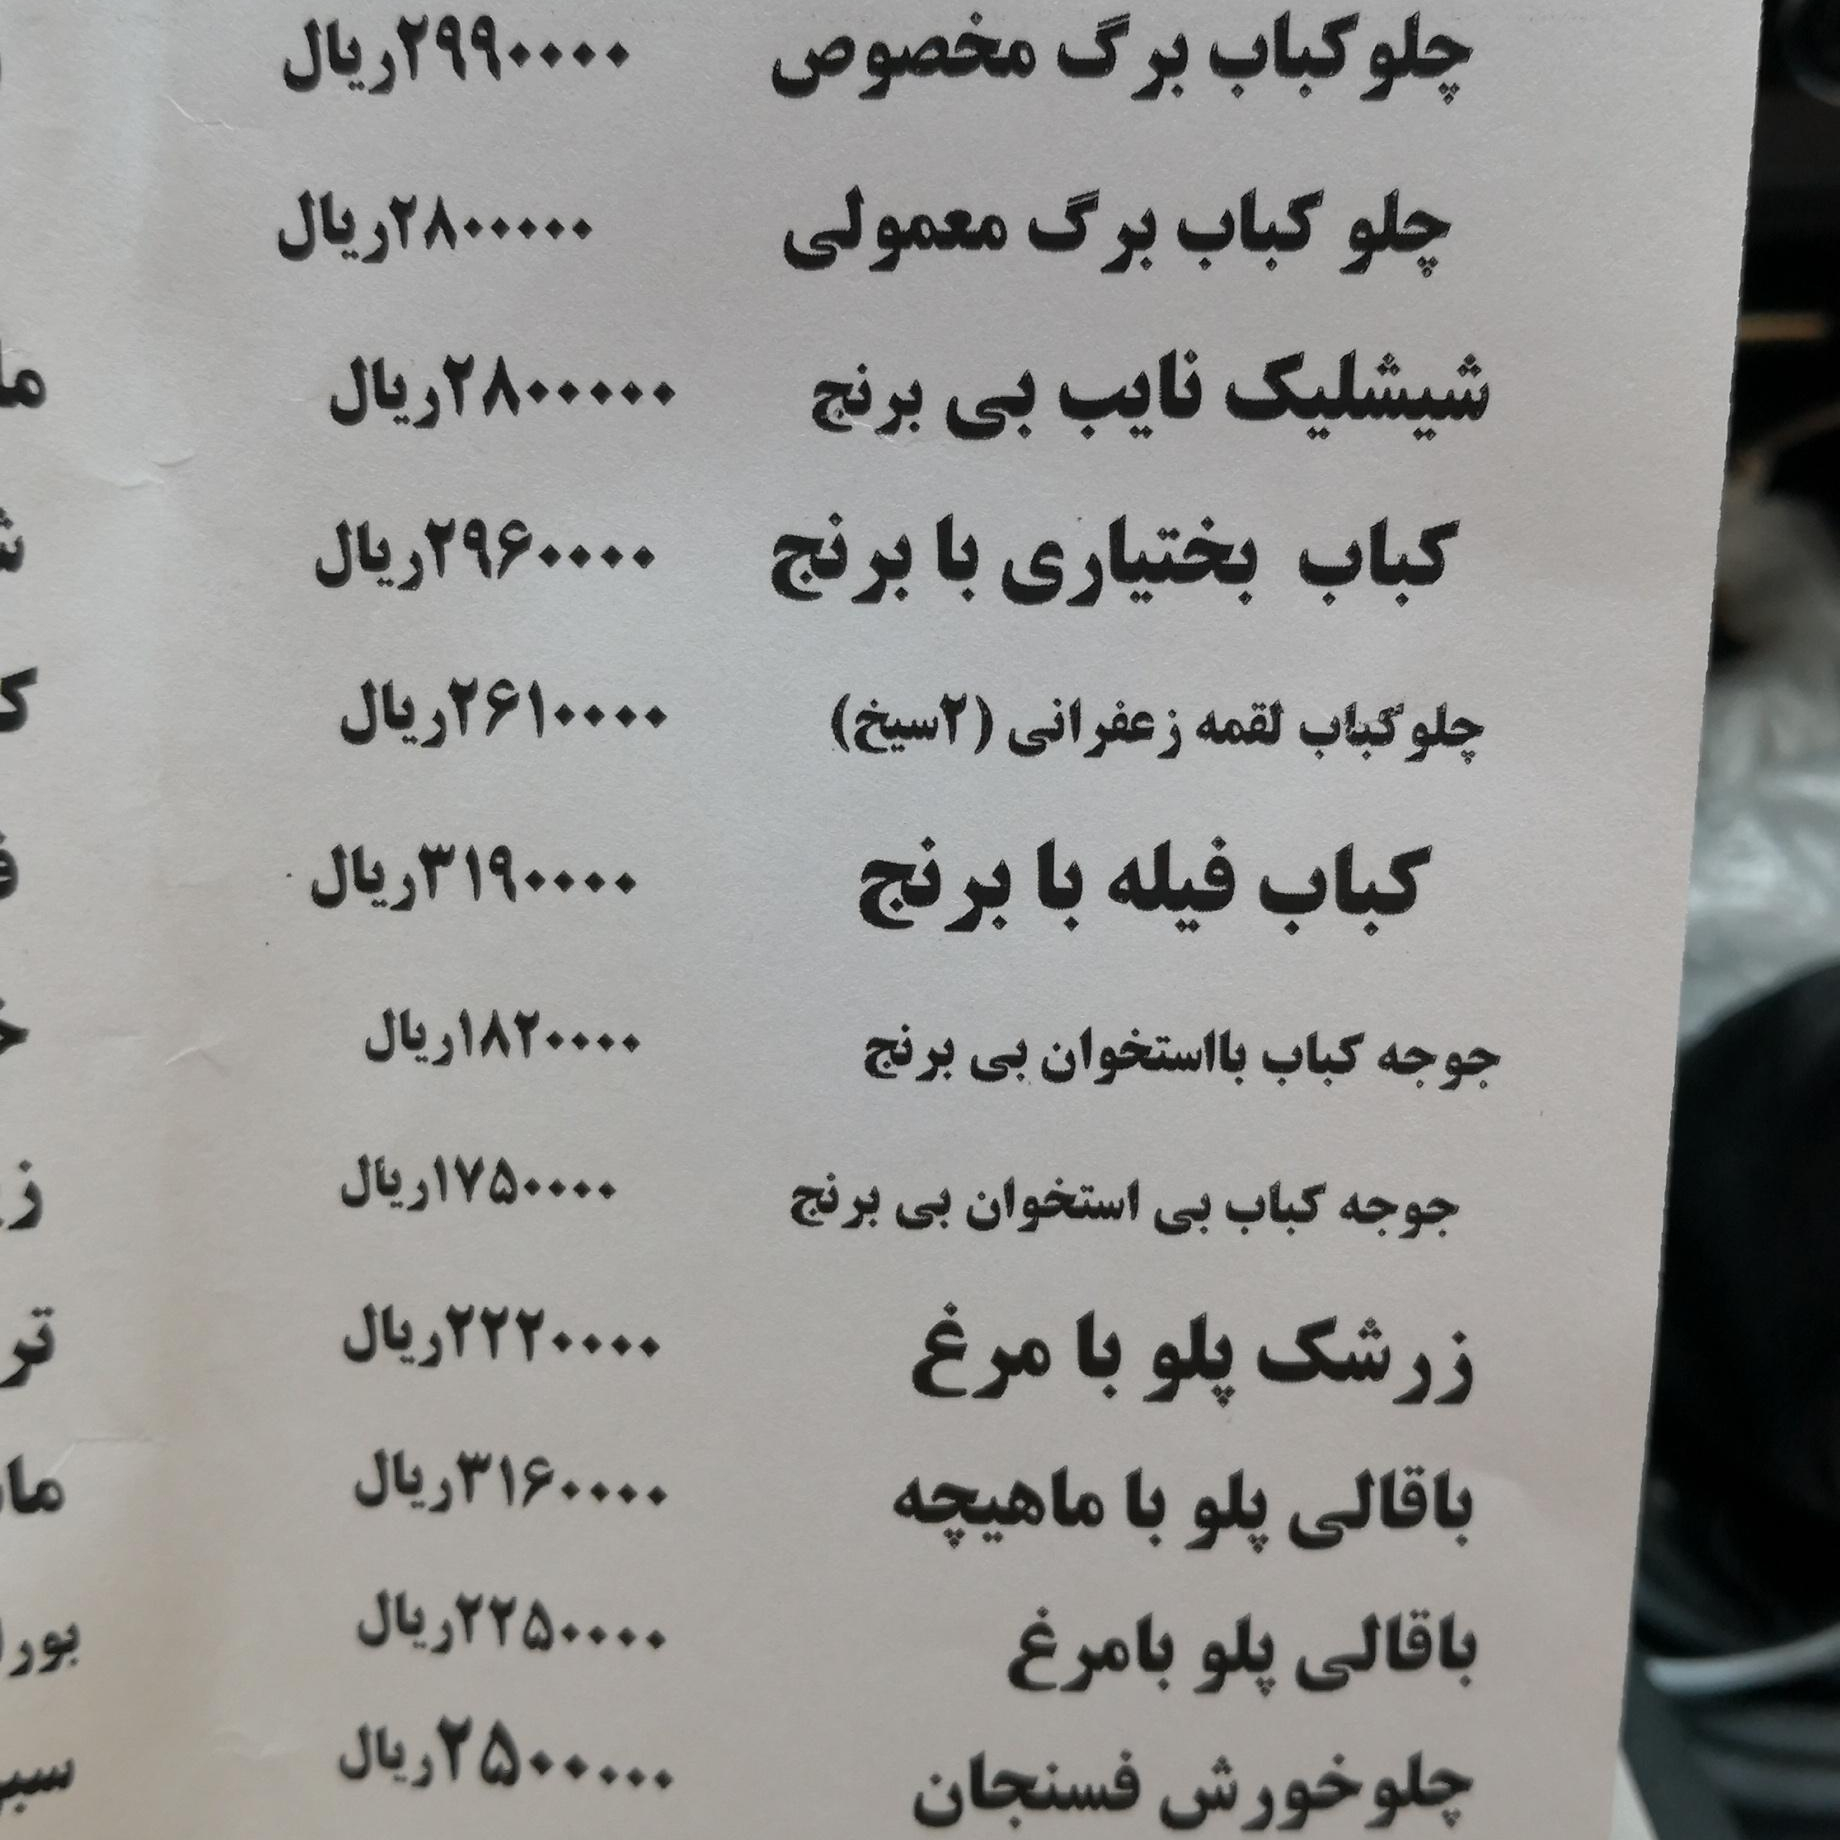 چلوکباب برگ مخصوص ۲۹۹۰۰۰۰ریال
چلو کباب برگ معمولی ۲۸۰۰۰۰۰ریال
شیشلیک نایب بی برنج ۲۸۰۰۰۰۰ریال
کباب بختیاری با برنج ۲۹۶۰۰۰۰ریال
چلوکباب لقمه زعفرانی (۲سیخ) ۲۶۱۰۰۰۰ریال
کباب فیله با برنج ۳۱۹۰۰۰۰ریال
جوجه کباب بااستخوان بی برنج ۱۸۲۰۰۰۰ریال
جوجه کباب بی استخوان بی برنج ۱۷۵۰۰۰۰ریال
زرشک پلو با مرغ ۲۲۲۰۰۰۰ریال
باقالی پلو با ماهیچه ۳۱۶۰۰۰۰ریال
باقالی پلو بامرغ ۲۲۵۰۰۰۰ریال
چلوخورش فسنجان ۲۵۰۰۰۰۰ریال